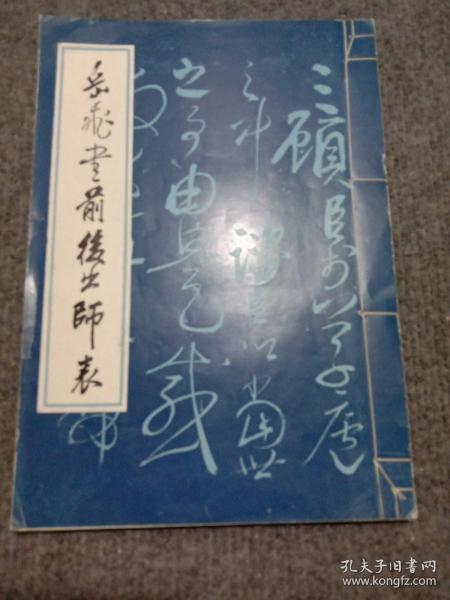 岳飞書前後出師表
三顧臣於草廬
之中諮臣以當世
之事由是感
孔夫子旧书网
www.kongfz.com